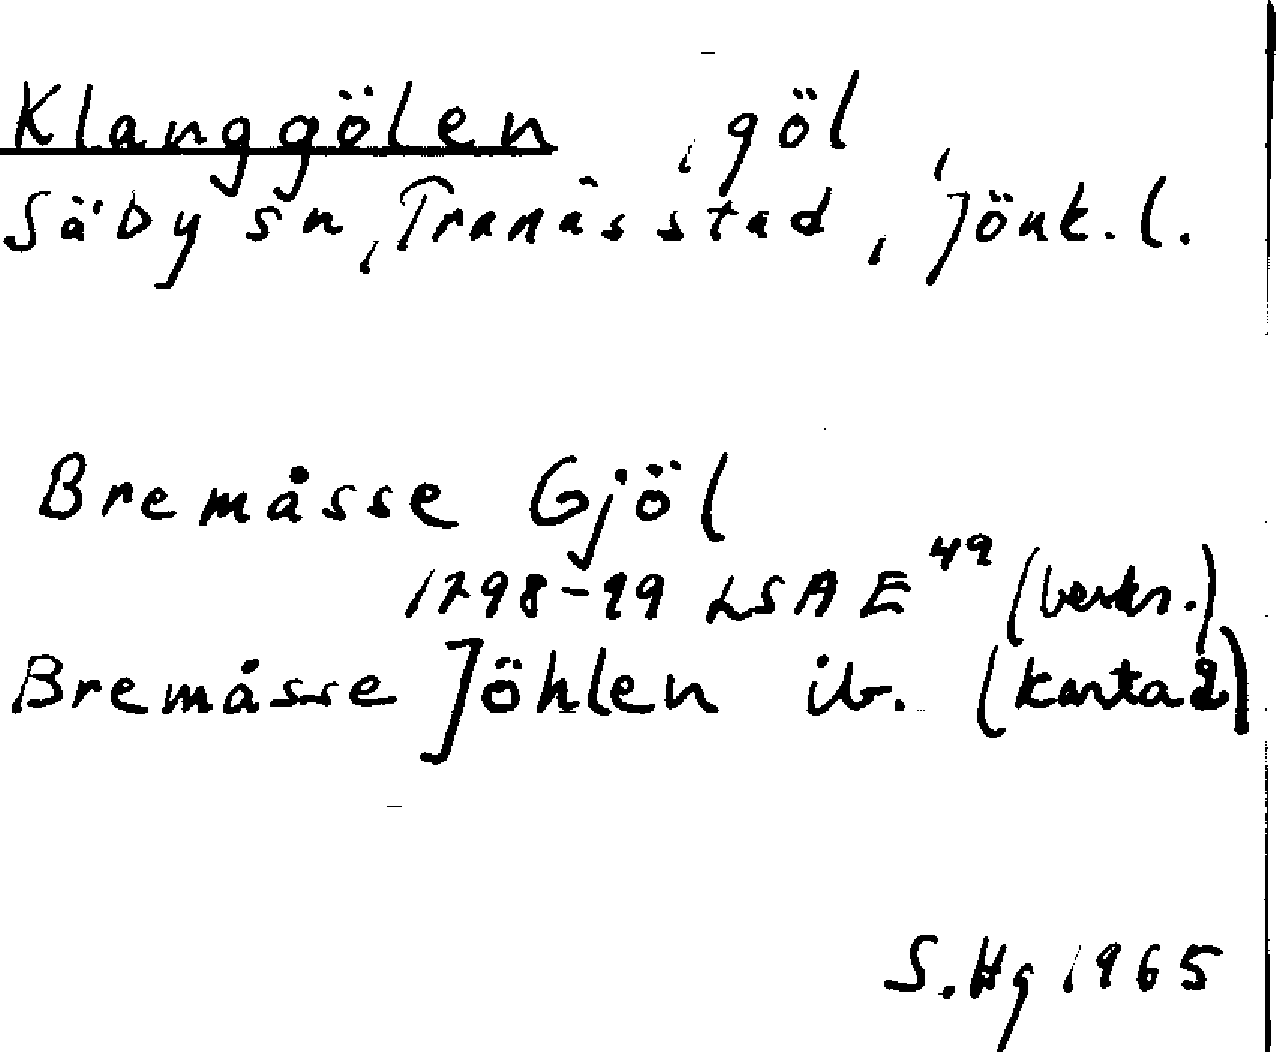 Klanggölen, göl,
Säby sn, Tranås stad, Jönk. l.
Bremåsse Gjöl
1798-99 LSA E 49 (beskr.)
Bremåsse Jöhlen ib. (karta 2)
S. Hg 1965